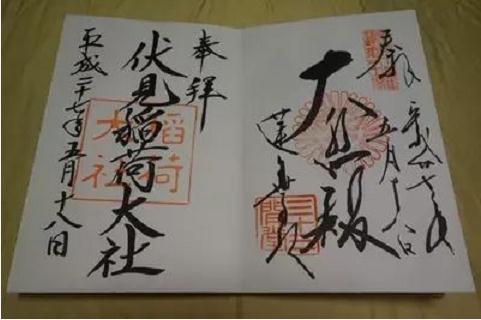 奉拝
平成廿七年
五月十八日
大悲殿
蓮華王院
三十三間堂
奉拝
伏見稲荷大社
稲荷大社
平成二十七年五月十八日